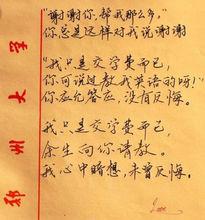 "谢谢你,帮我那么多,"
你总是这样对我说谢谢
"我只是交学费而已,
你可说过教我英语的呀!"
你应允答应,没有反悔。
我只是交学费而已,
余生向你请教。
我心中暗想,未曾反悔。
郑州大学